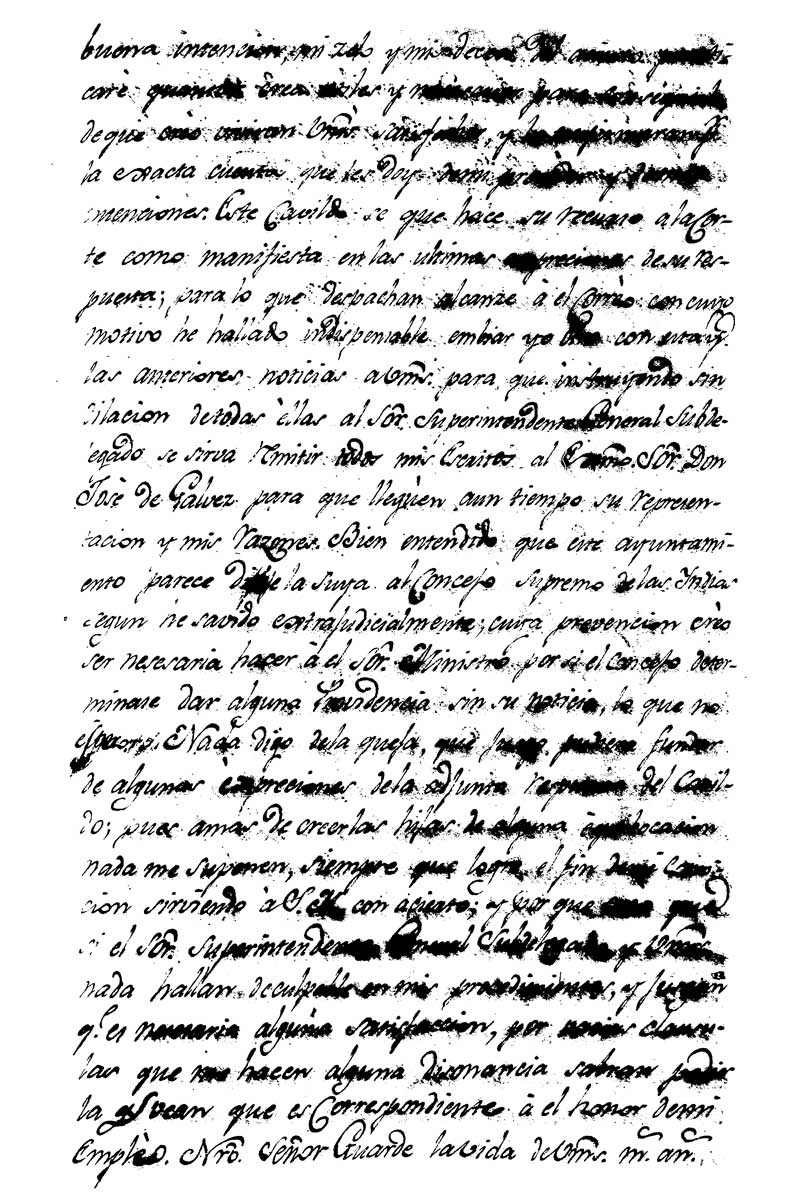 buena intencion, mi zelo y mi deceo
carè quanto crea utiles y necesario para conseguirlo
de que creo quedaran Vms̃. satisfechos, y
la exacta cuenta que les doy de mi proceder y
intenciones. Este Cavildo se que hace su recurso a la Cor-
te como manifiesta en las ultimas expreciones de su res-
puesta; para lo que despachan alcanze à el Corrèo con cuyo
motivo he hallado indispensable embiar yo con esta y
las anteriores noticias a Vms̃. para que instruyendo sin
dilacion de todas èllas al Sõr. Superintendente General Subde-
legado se sirva remitir todos mis Escritos al Exmõ. Sõr. Don
Josè de Galvez para que lleguen a un tiempo su represen-
tacion y mis razones. Bien entendido que este ayuntami-
ento parece dirije la suya al Concejo Supremo de las Indias
segun he savido extrajudicialmente; cuira prevencion crèo
ser nesesaria hacer à el Sõr. Ministro por si el Concejo deter-
minase dar alguna Providencia sin su noticia, lo que no
espero. Nada digo de la queja, que juzgo pudiera fundar
de algunas èxpreciones de la adjunta respuesta del Cavil-
do; pues amas de creerlas hijas de alguna èquibocacion
nada me suponen, siempre que logre el fin de mi Comi-
cion sirviendo à S. M. con acierto; y por que que
si el Sõr. Superintendente General Subdelegado, y Vms̃.
nada hallan de culpable en mis procedimientos, y juzgan
q.e es necesaria alguna satisfaccion, por varias clausu-
las que me hacen alguna disonancia sabran pedir
la q̃ vean que es Correspondiente à el honor de mi
Emplèo. Nrõ. Señor Guarde la vida de Vms̃. m.s an.s